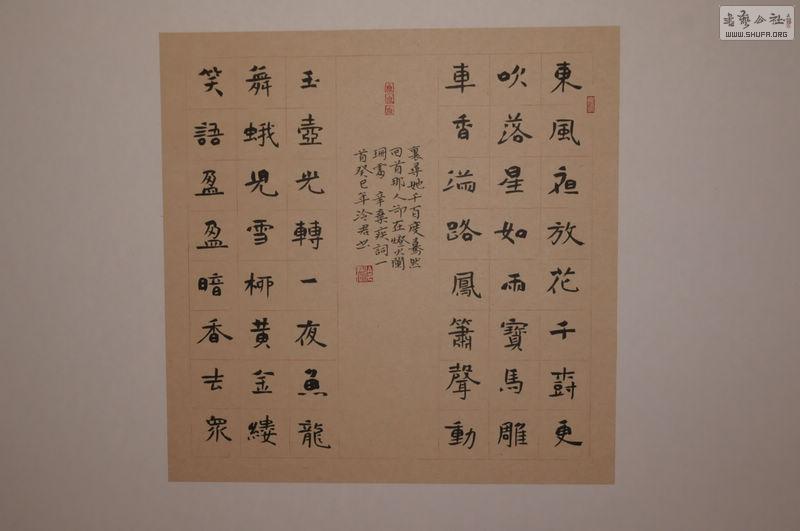 東風夜放花千樹更
吹落星如雨寶馬雕
車香滿路鳳簫聲動
玉壺光轉一夜魚龍
舞蛾兒雪柳黃金縷
笑語盈盈暗香去眾
裏尋她千百度驀然
回首那人卻在燈火闌
珊處 辛棄疾詞一
首癸巳年泠君書
书艺公社
www.SHUFA.ORG